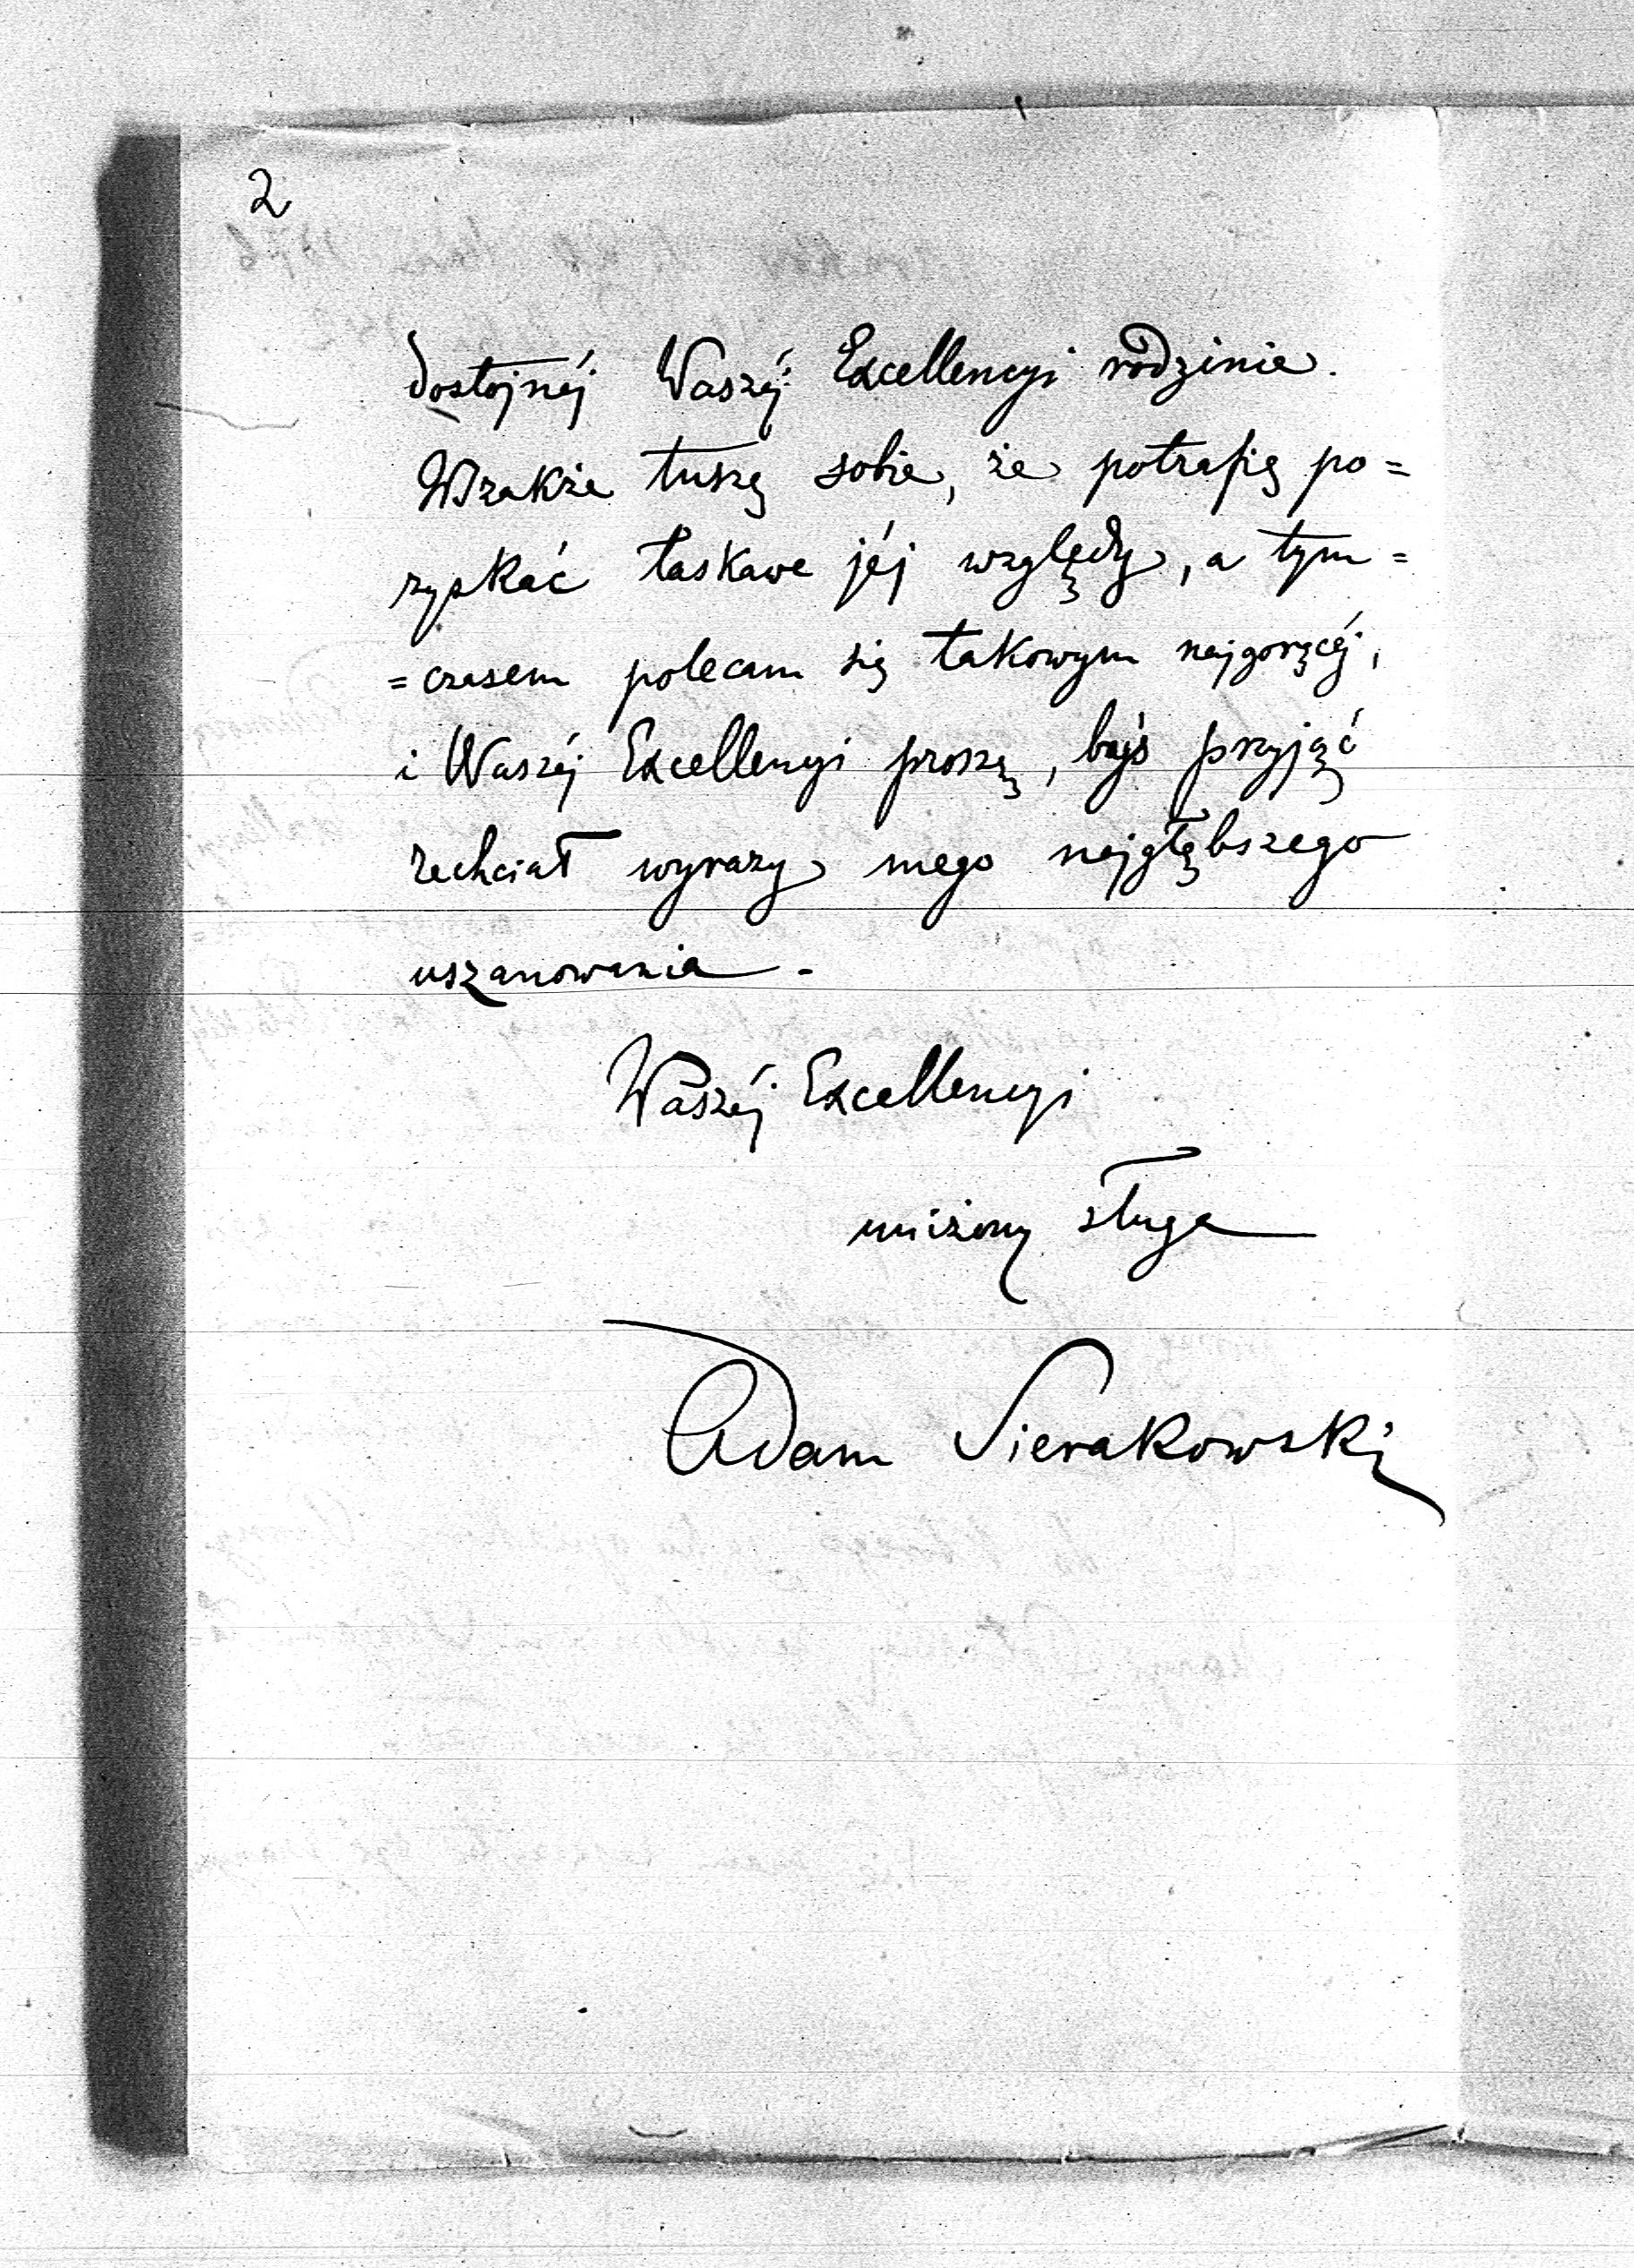 2
dostojnéj Waszéj Excellencyi rodzinie.
Wszakże tuszę sobie, że potrafię po=
zyskać łaskawe jéj względy, a tym=
=czasem polecam się takowym najgoręcéj,
i Waszéj Excellencyi proszę, byś przyjąć
zechciał wyrazy mego najgłębszego
uszanowania.
Waszéj Excellencyi
uniżony sługa
Adam Sierakowski